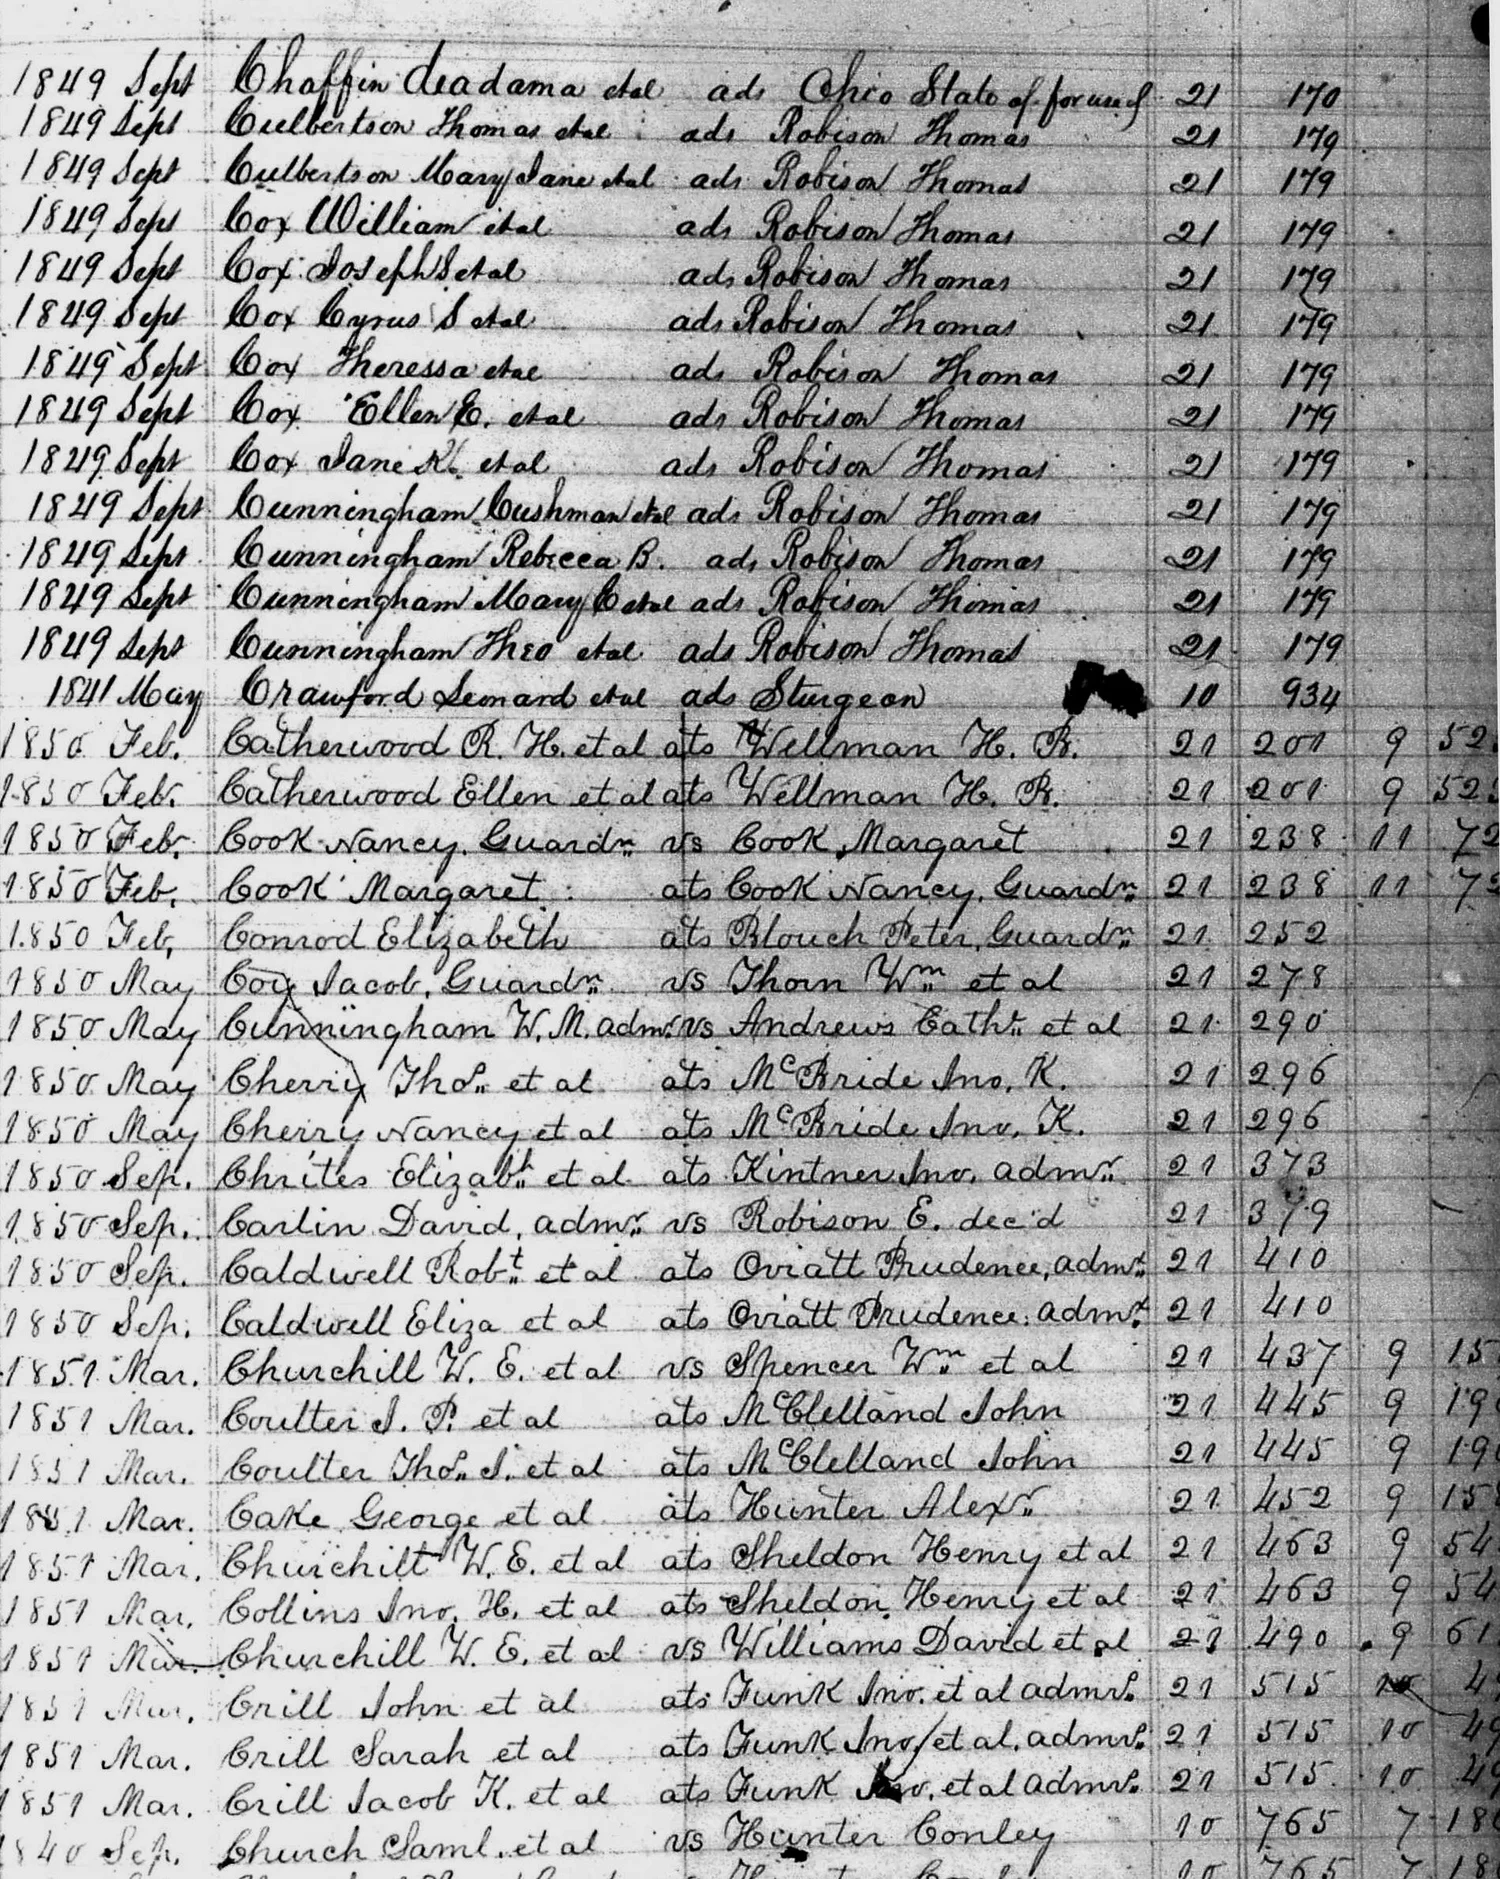 1849 Sept Chaffin Seadama etal ads Ohio State of for use of 21 170
1849 Sept Culbertson Thomas etal ads Robison Thomas 21 179
1849 Sept Culbertson Mary Jane etal ads Robison Thomas 21 179
1849 Sept Cox William etal ads Robison Thomas 21 179
1849 Sept Cox Joseph S etal ads Robison Thomas 21 179
1849 Sept Cox Cyrus S etal ads Robison Thomas 21 179
1849 Sept Cox Theressa etal ads Robison Thomas 21 179
1849 Sept Cox Ellen E. etal ads Robison Thomas 21 179
1849 Sept Cox Jane K. etal ads Robison Thomas 21 179
1849 Sept Cunningham Cushman etal ads Robison Thomas 21 179
1849 Sept Cunningham Rebecca B. ads Robison Thomas 21 179
1849 Sept Cunningham Mary C etal ads Robison Thomas 21 179
1849 Sept Cunningham Theo etal ads Robison Thomas 21 179
1841 May Crawford Leonard etal ads Sturgeon 10 934
1850 Feb. Catherwood R. H. et al ats Wellman H. R. 21 201 9 52
1850 Feb. Catherwood Ellen et al ats Wellman H. R. 21 201 9 52
1850 Feb. Cook Nancy, Guardn vs Cook Margaret 21 238 11 72
1850 Feb. Cook Margaret ats Cook Nancy, Guardn 21 238 11 72
1850 Feb. Conrod Elizabeth ats Blouch Peter, Guardn 21 252
1850 May Coy Jacob, Guardn vs Thorn Wm et al 21 278
1850 May Cunningham W. M. admr vs Andrews Cathr et al 21 290
1850 May Cherry Thos et al ats McBride Jno. K. 21 296
1850 May Cherry Nancy et al ats McBride Jno. K. 21 296
1850 Sep. Chrites Elizabh et al ats Kintner Jno. admr 21 373
1850 Sep. Carlin David, admr vs Robison E. dec'd 21 379
1850 Sep. Caldwell Robt et al ats Oviatt Prudence, admr 21 410
1850 Sep. Caldwell Eliza et al ats Oviatt Prudence, admr 21 410
1851 Mar. Churchill W. E. et al vs Spencer Wm et al 21 437 9 15
1851 Mar. Coulter J. P. et al ats McClelland John 21 445 9 19
1851 Mar. Coulter Thos J. et al ats McClelland John 21 445 9 19
1851 Mar. Cake George et al ats Hunter Alexr 21 452 9 15
1851 Mar. Churchill W. E. et al ats Sheldon Henry et al 21 463 9 54
1851 Mar. Collins Jno. H. et al ats Sheldon Henry et al 21 463 9 54
1851 Mar. Churchill W. E. et al vs Williams David et al 21 490 9 61
1851 Mar. Crill John et al ats Funk Jno. et al admrs 21 515 10 49
1851 Mar. Crill Sarah et al ats Funk Jno. et al. admrs 21 515 10 49
1851 Mar. Crill Jacob K. et al ats Funk Jno. et al admrs 21 515 10 49
1840 Sep. Church Saml. et al vs Hunter Conley 10 765 7 18
10 765 7 18